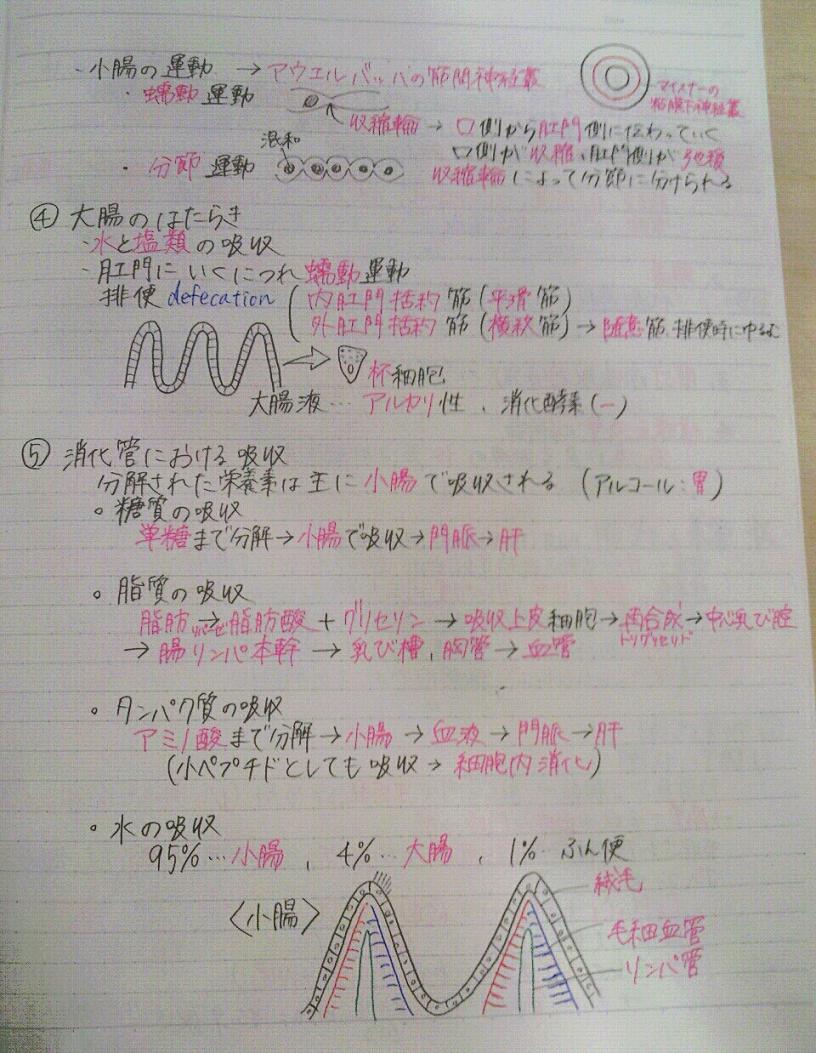 ・小腸の運動 → アウエルバッハの筋間神経叢
マイスナーの
粘膜下神経叢
・蠕動運動
収縮輪 → 口側から肛門側に伝わっていく
口側が収縮、肛門側が弛緩
混和
・分節運動
収縮輪によって分節に分けられる
④ 大腸のはたらき
・水と塩類の吸収
・肛門にいくにつれ蠕動運動
排便 defecation
内肛門括約筋(平滑筋)
外肛門括約筋(横紋筋) → 随意筋、排便時にゆるむ
杯細胞
大腸液… アルカリ性、消化酵素(ー)
⑤ 消化管における吸収
分解された栄養素は主に小腸で吸収される (アルコール:胃)
○ 糖質の吸収
単糖まで分解→小腸で吸収→門脈→肝
○ 脂質の吸収
脂肪→脂肪酸+グリセリン→吸収上皮細胞→再合成→中心乳び腔
リパーゼ
トリグリセリド
→ 腸リンパ本幹 → 乳び槽、胸管 → 血管
○ タンパク質の吸収
アミノ酸まで分解→小腸→血液→門脈→肝
(小ペプチドとしても吸収→細胞内消化)
○ 水の吸収
95%…小腸、4%…大腸、1%…ふん便
〈小腸〉
絨毛
毛細血管
リンパ管